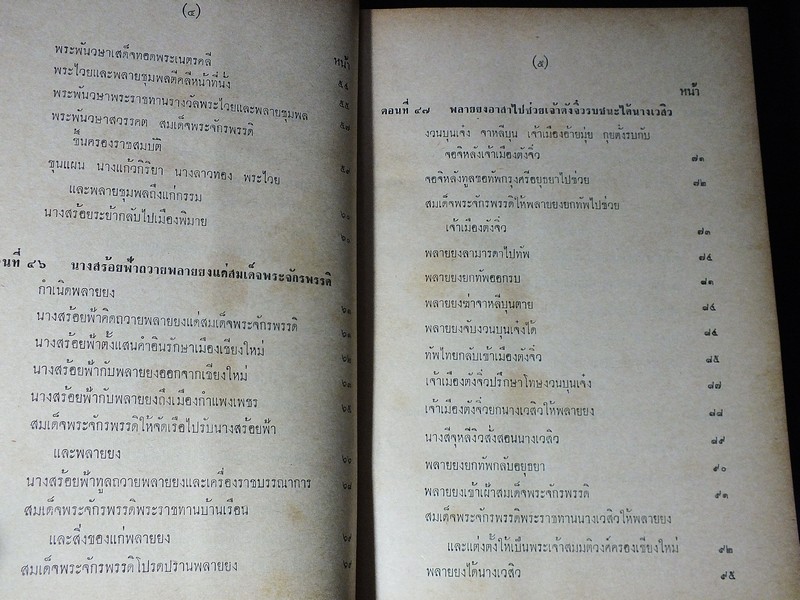 (๔)
หน้า
พระพันวษาเสด็จทอดพระเนตรคลี
พระไวยและพลายชุมพลตีคลีหน้าที่นั่ง ๕๔
พระพันวษาพระราชทานรางวัลพระไวยและพลายชุมพล ๕๕
พระพันวษาสวรรคต สมเด็จพระจักรพรรดิ ๕๗
ขึ้นครองราชสมบัติ
ขุนแผน นางแก้วกิริยา นางลาวทอง พระไวย ๕๙
และพลายชุมพลถึงแก่กรรม
นางสร้อยระย้ากลับไปเมืองพิมาย ๖๐
๖๐
นที่ ๔๖ นางสร้อยฟ้าถวายพลายยงแด่สมเด็จพระจักรพรรดิ
กำเนิดพลายยง ๖๑
นางสร้อยฟ้าคิดถวายพลายยงแด่สมเด็จพระจักรพรรดิ ๖๑
นางสร้อยฟ้าตั้งแสนคำอินรักษาเมืองเชียงใหม่ ๖๒
นางสร้อยฟ้ากับพลายยงออกจากเชียงใหม่ ๖๓
นางสร้อยฟ้ากับพลายยงถึงเมืองกำแพงเพชร ๖๕
สมเด็จพระจักรพรรดิให้จัดเรือไปรับนางสร้อยฟ้า
และพลายยง ๖๖
นางสร้อยฟ้าทูลถวายพลายยงและเครื่องราชบรรณาการ ๖๘
สมเด็จพระจักรพรรดิพระราชทานบ้านเรือน
และสิ่งของแก่พลายยง ๖๙
สมเด็จพระจักรพรรดิโปรดปรานพลายยง ๖๙
(๕)
หน้า
ตอนที่ ๔๗ พลายยงอาสาไปช่วยเจ้าตังจิ๋วรบชนะได้นางเวสิว
งวนบุนเจ๋ง จาหลีบุน เจ้าเมืองอ้ายมุ่ย กุยตั้งรบกับ
จอจิหลังเจ้าเมืองตังจิ๋ว ๗๑
จอจิหลังทูลขอทัพกรุงศรีอยุธยาไปช่วย ๗๒
สมเด็จพระจักรพรรดิให้พลายยงยกทัพไปช่วย
เจ้าเมืองตังจิ๋ว ๗๓
พลายยงลามารดาไปทัพ ๗๕
พลายยงยกทัพออกรบ ๘๑
พลายยงฆ่าจาหลีบุนตาย ๘๔
พลายยงจับงวนบุนเจ๋งได้ ๘๔
ทัพไทยกลับเข้าเมืองตังจิ๋ว ๘๕
เจ้าเมืองตังจิ๋วปรึกษาโทษงวนบุนเจ๋ง ๘๗
เจ้าเมืองตังจิ๋วยกนางเวสิวให้พลายยง ๘๘
นางสีจุหลีงิวสั่งสอนนางเวสิว ๘๙
พลายยงยกทัพกลับอยุธยา ๙๐
พลายยงเข้าเฝ้าสมเด็จพระจักรพรรดิ ๙๑
สมเด็จพระจักรพรรดิพระราชทานนางเวสิวให้พลายยง
และแต่งตั้งให้เป็นพระเจ้าสมมติวงศ์ครองเชียงใหม่ ๙๒
พลายยงได้นางเวสิว ๙๕